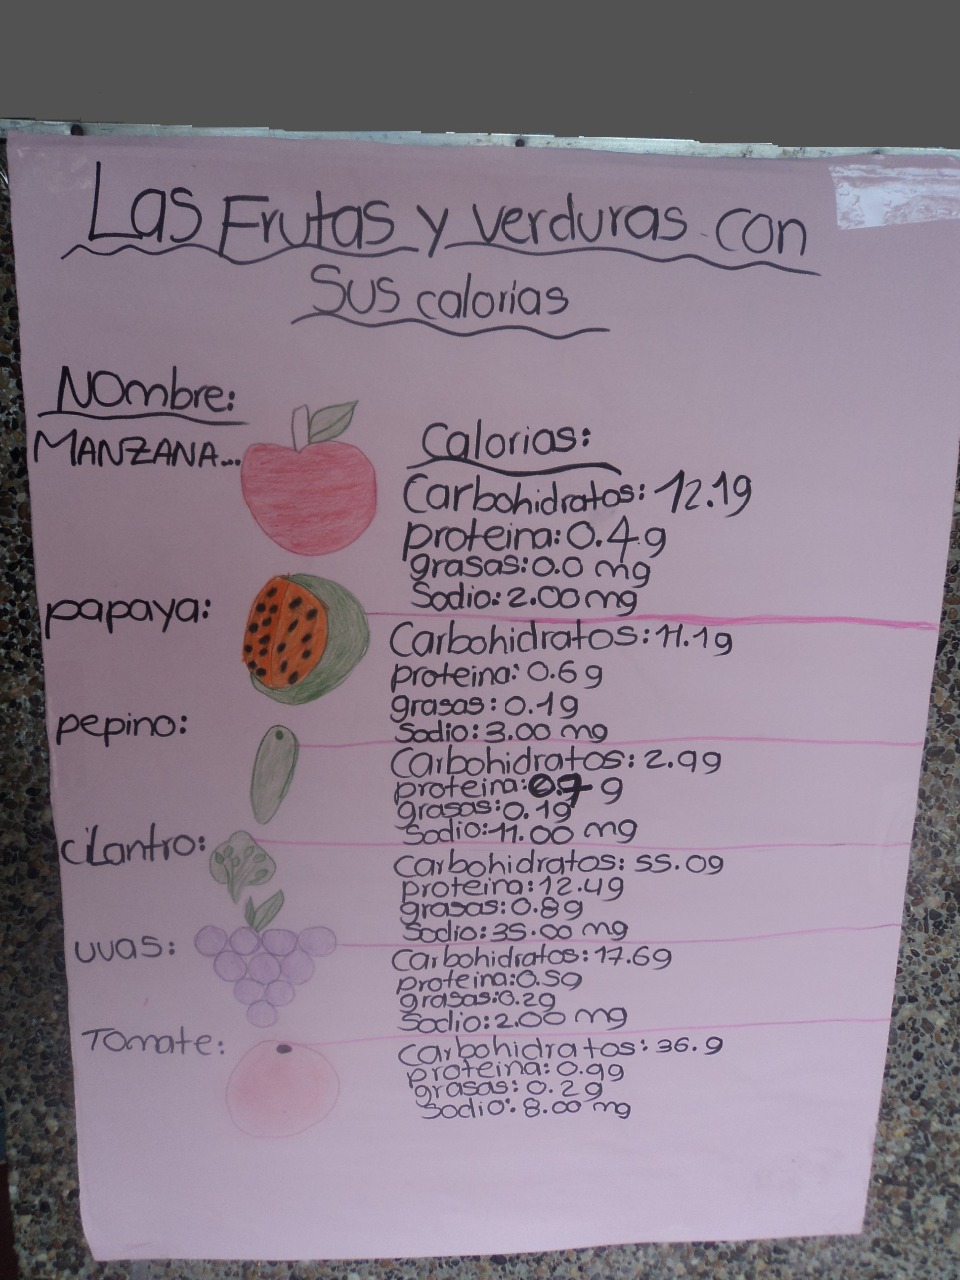 Las Frutas y verduras con
Sus calorias
Nombre:
MANZANA...
Calorias:
Carbohidratos: 12.1g
proteina: 0.4 g
grasas: 0.0 mg
Sodio: 2.00 mg
papaya:
Carbohidratos: 11.1g
proteina: 0.6 g
grasas: 0.1g
Sodio: 3.00 mg
pepino:
Carbohidratos: 2.9g
proteina: 0.7 g
grasas: 0.1g
Sodio: 11.00 mg
ciLantro:
Carbohidratos: 55.0g
proteina: 12.4g
grasas: 0.8g
Sodio: 35.00 mg
uvas:
Carbohidratos: 17.6g
proteina: 0.5g
grasas: 0.2g
Sodio: 2.00 mg
Tomate:
Carbohidratos: 36.g
proteina: 0.9g
grasas: 0.2g
Sodio: 8.00 mg